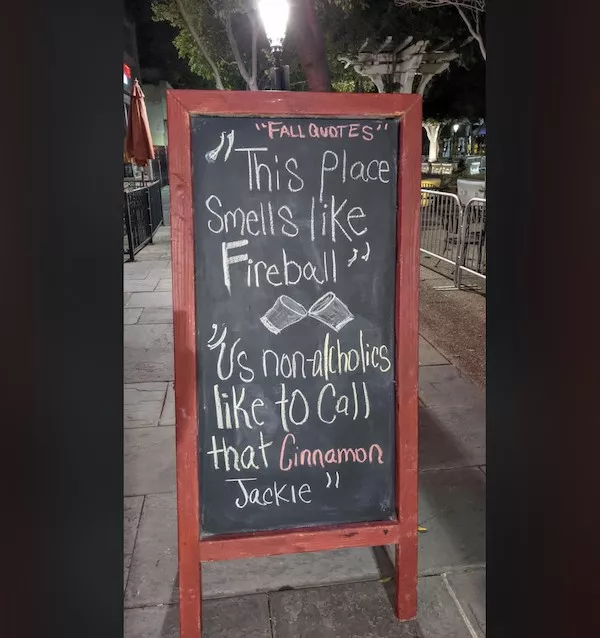 "FALL QUOTES"
"This Place
Smells like
Fireball"
"Us non-alcholics
like to Call
that Cinnamon
Jackie"